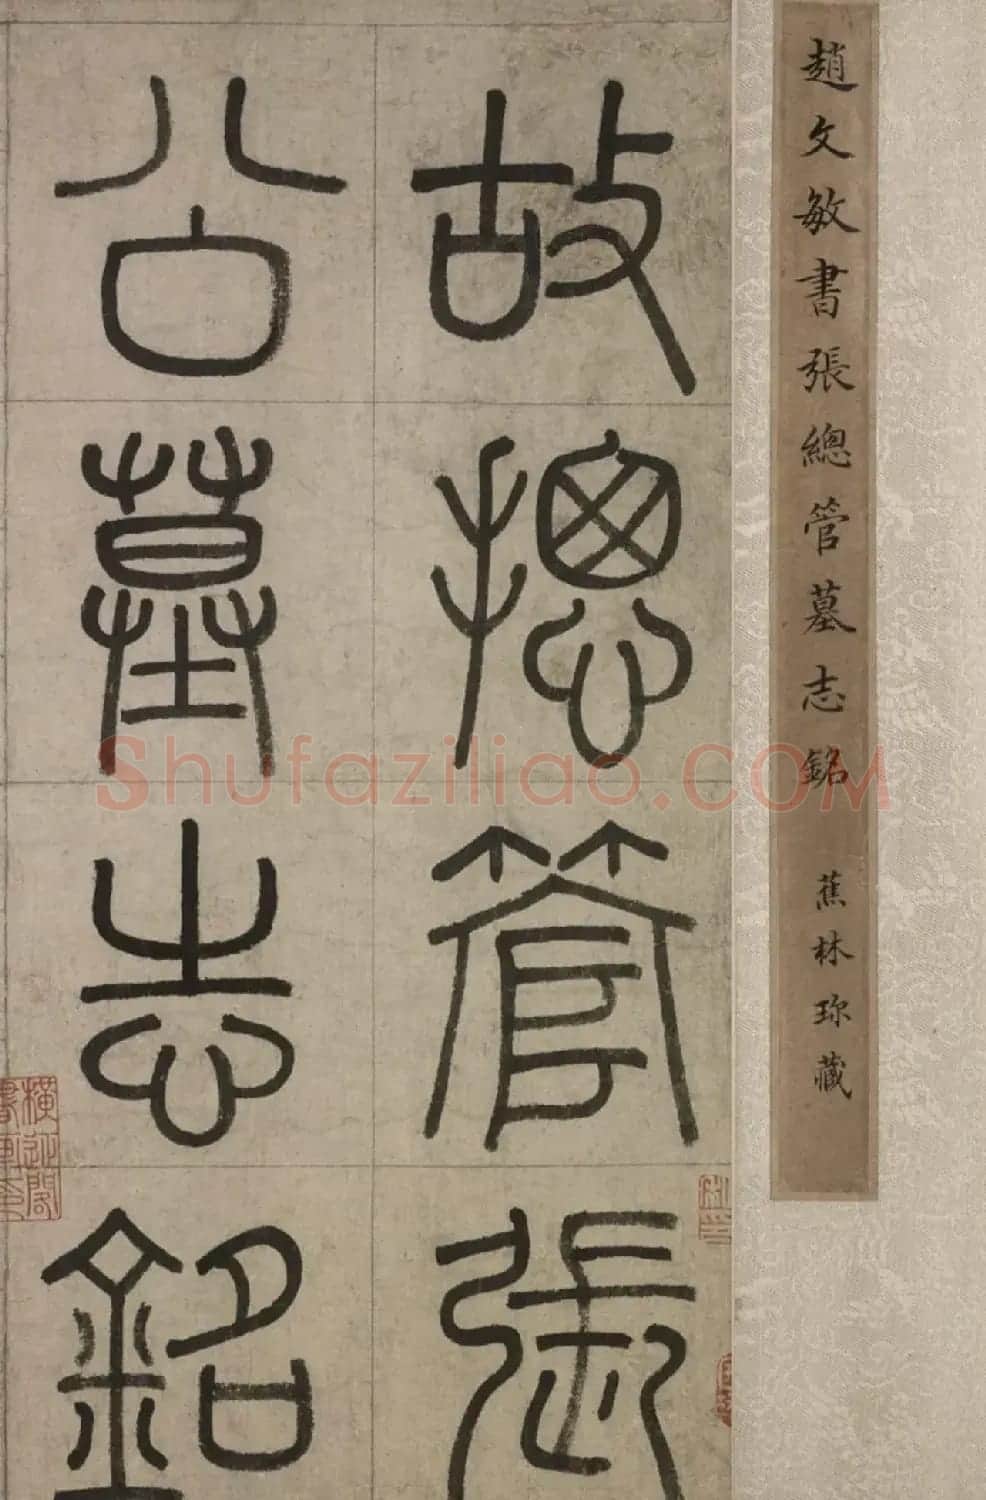 趙文敏書張總管墓志銘 蕉林珍藏
故摠管張
公墓志銘
Shufaziliao.COM